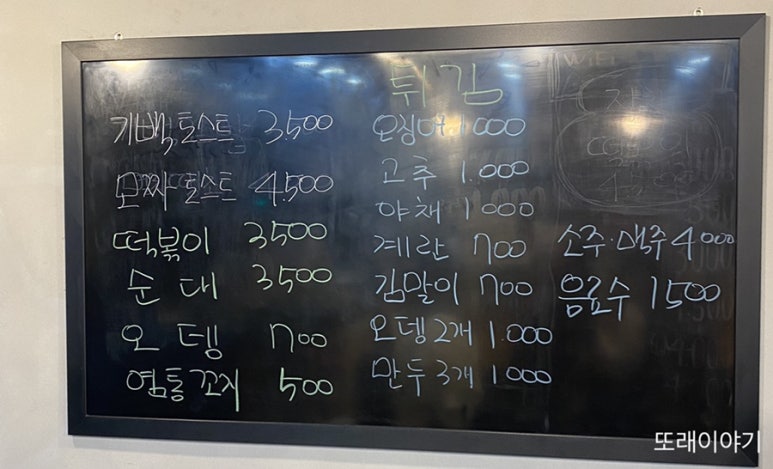 키빽토스트 3.500
모짜토스트 4.500
떡볶이 3500
순대 3500
오뎅 700
염통꼬지 500
튀김
오징어 1000
고추 1.000
야채 1000
계란 700
김말이 700
오뎅 2개 1.000
만두 3개 1000
WiFi
소주·맥주 4000
음료수 1500
또래이야기